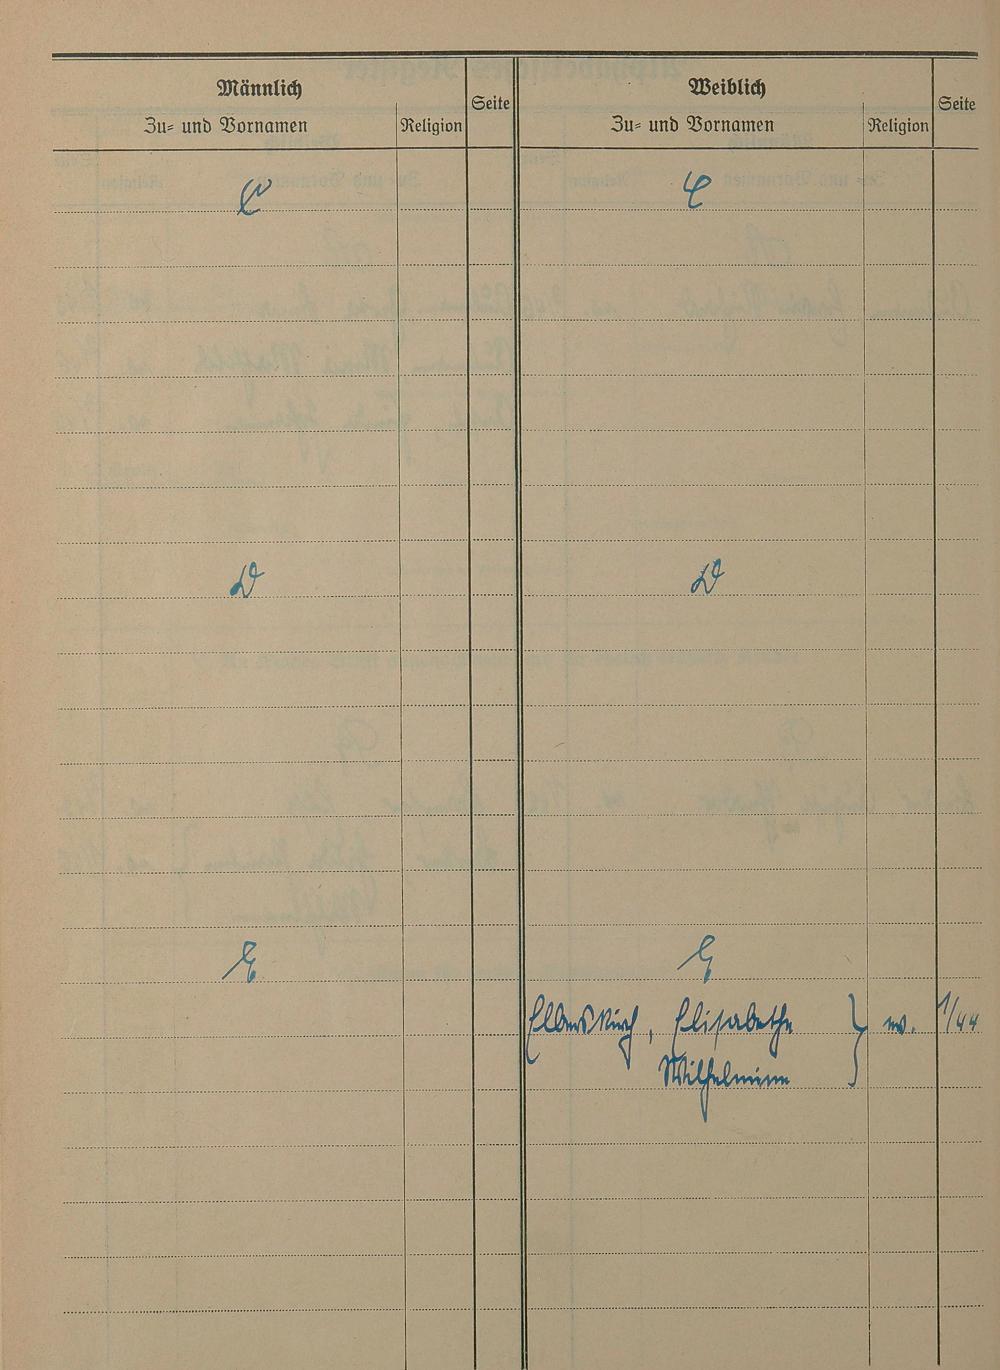 Männlich
Zu- und Vornamen
Religion
Seite
Weiblich
Zu- und Vornamen
Religion
Seite
C
C
D
D
E
E
Elberskirch, Elisabethe } ev. 1/44
Wilhelmine